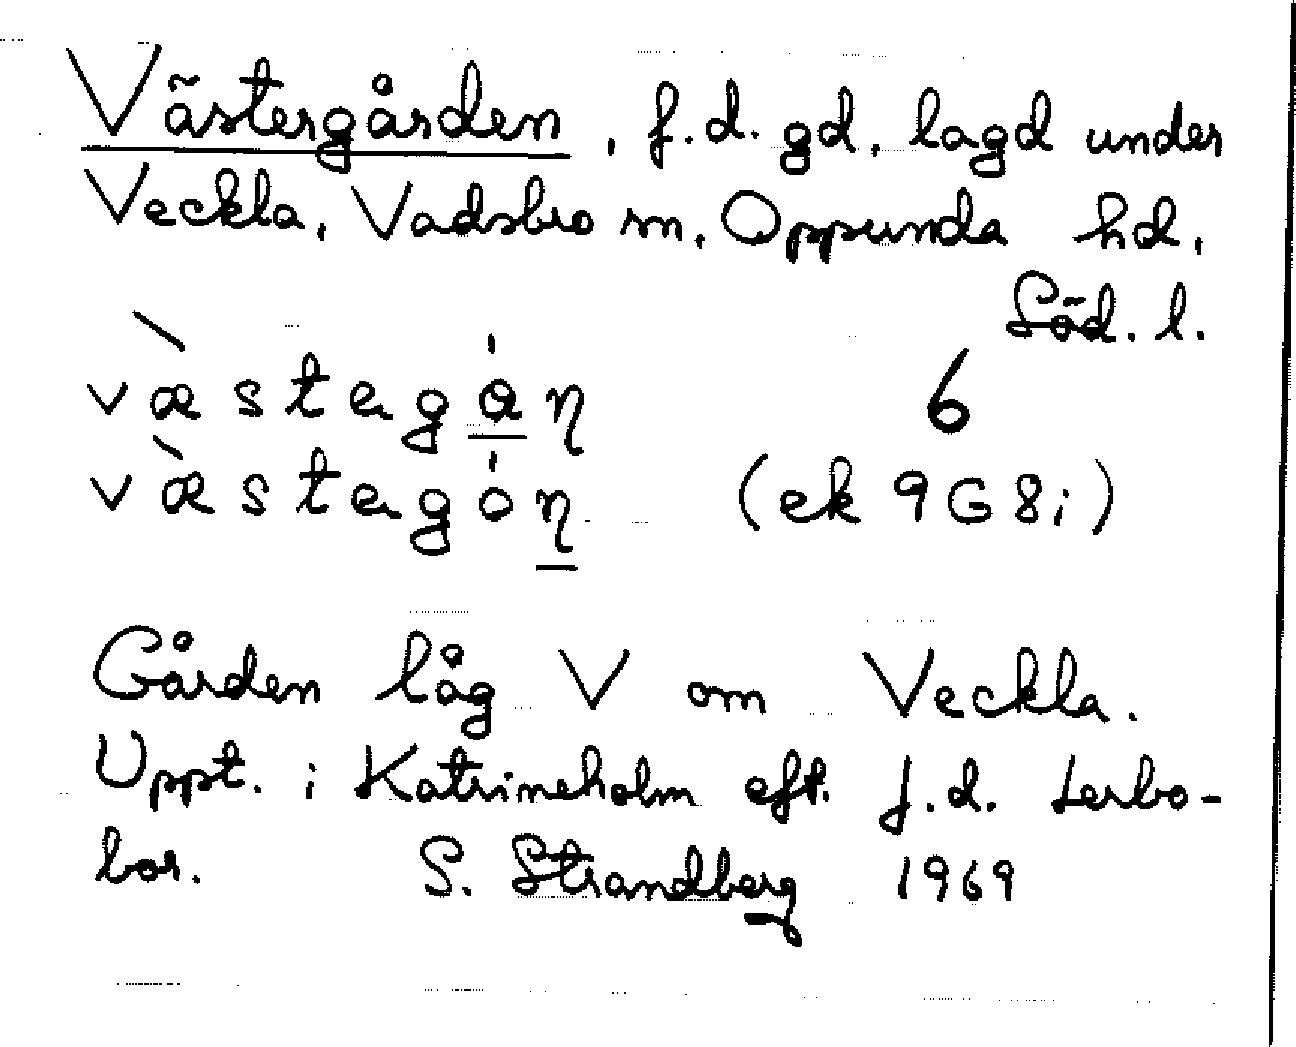 Västergården, f.d. gd, lagd under
Veckla, Vadsbro sn, Oppunda hd,
Söd. l.
væ̀stəgȧ̱ɳ 6
væ̀stəgȯɳ̱ (ek 9 G 8i)
Gården låg V om Veckla.
Uppt. i Katrineholm eft. f.d. Lerbo-
bor. S. Strandberg 1969